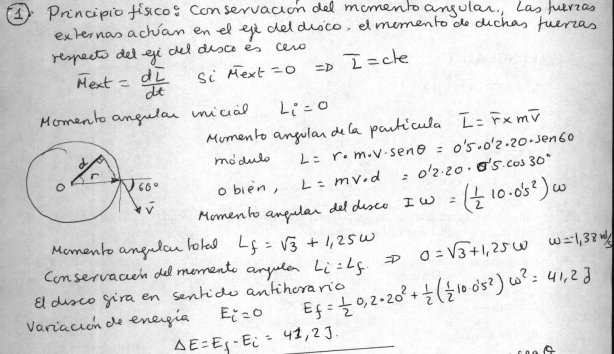 1. Principio físico: Conservación del momento angular. Las fuerzas
externas actúan en el eje del disco, el momento de dichas fuerzas
respecto del eje del disco es cero
M̄ext = dL̄/dt Si M̄ext = 0 => L̄ = cte
Momento angular inicial Li = 0
Momento angular de la partícula L̄ = r̄ x m v̄
módulo L = r·m·v·senθ = 0'5·0'2·20·sen60
o bien, L = mv·d = 0'2·20·0'5·cos30°
Momento angular del disco Iω = (1/2 10·0'5²) ω
d
r
O
60°
v̄
Momento angular total Lf = √3 + 1,25ω
Conservación del momento angular Li = Lf. => 0 = √3 + 1,25ω ω = 1,38
El disco gira en sentido antihorario
Variación de energía Ei = 0 Ef = 1/2 0,2·20² + 1/2 (1/2 10·0'5²) ω² = 41,2 J
ΔE = Ef - Ei = 41,2 J.